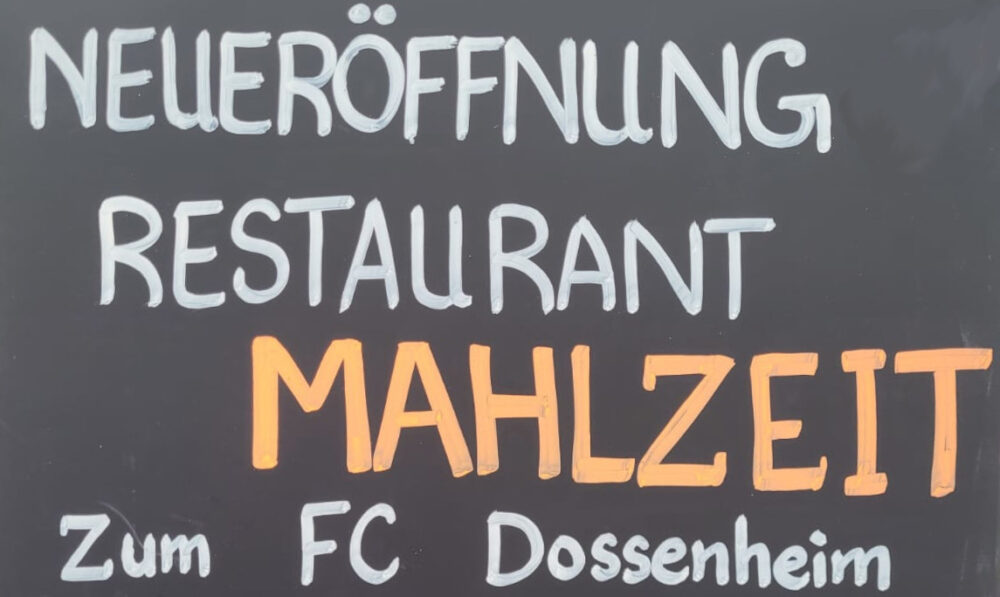 NEUERÖFFNUNG
RESTAURANT
MAHLZEIT
Zum FC Dossenheim